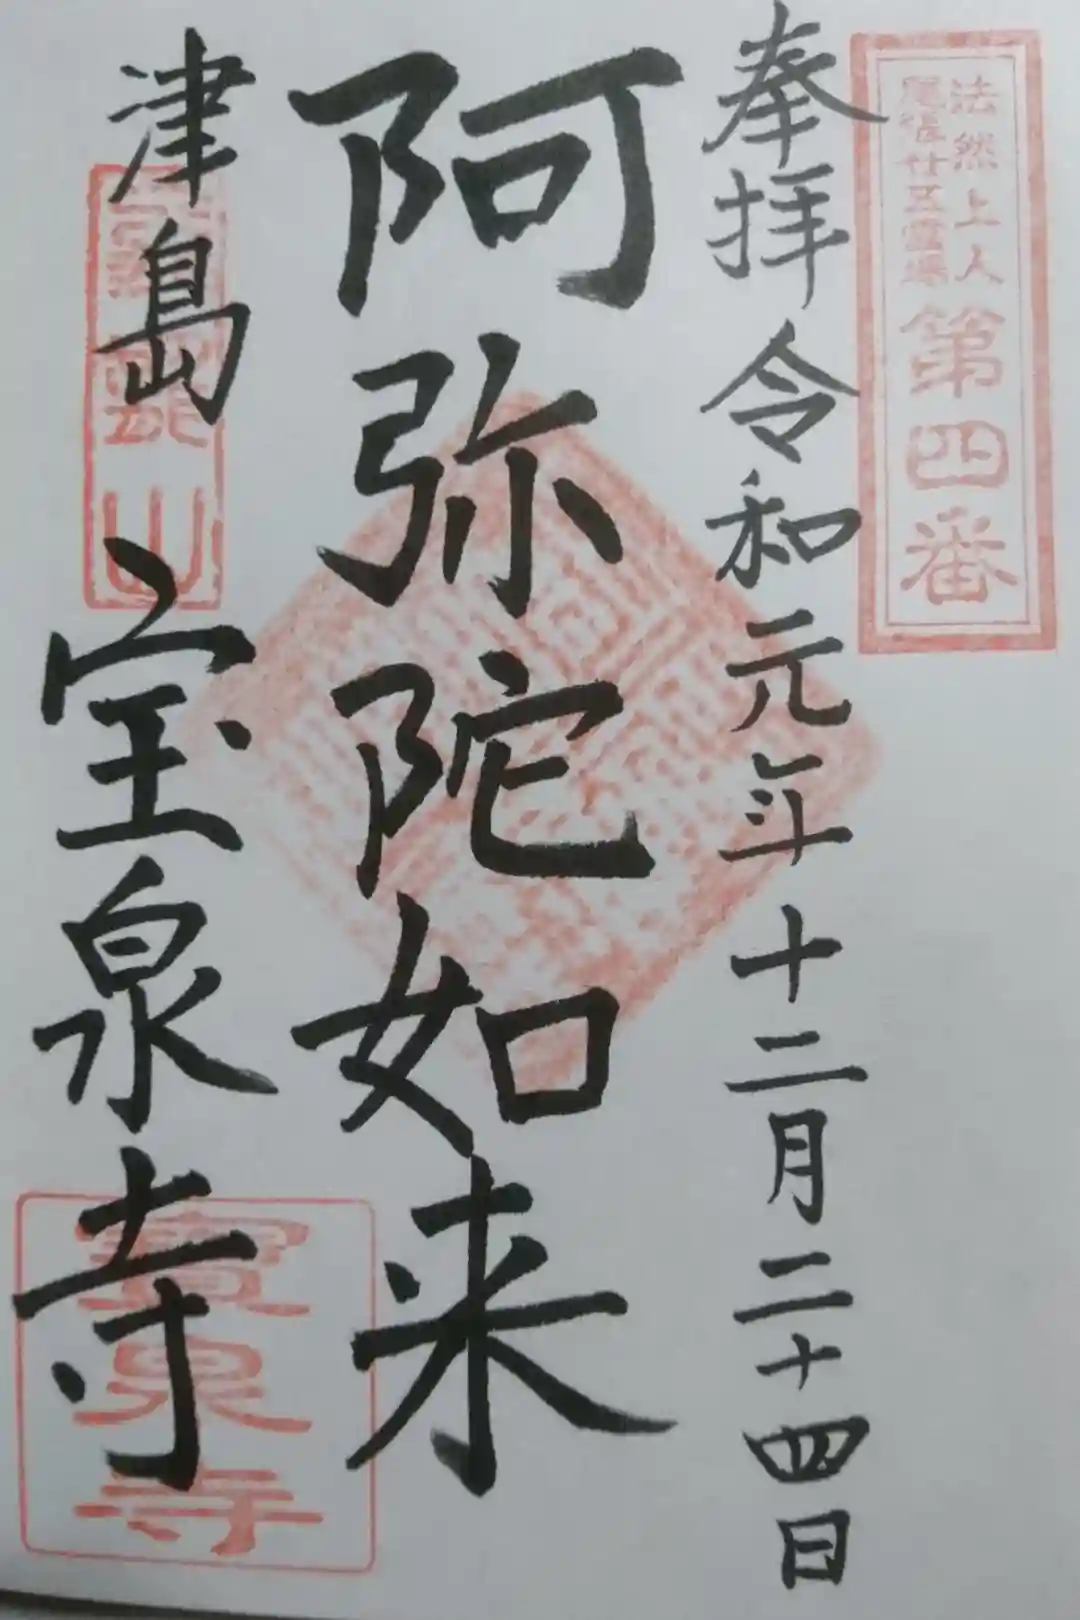 法然上人
尾張廿五霊場
第四番
奉拝 令和元年十二月二十四日
阿弥陀如来
津島 宝泉寺
山
寶泉寺